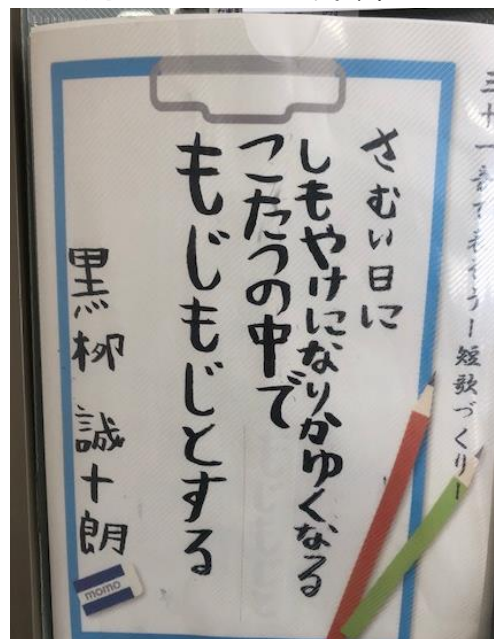 三十一音で表そうー短歌づくりー
さむい日に
しもやけになりかゆくなる
こたつの中で
もじもじとする
黒柳 誠十朗
momo